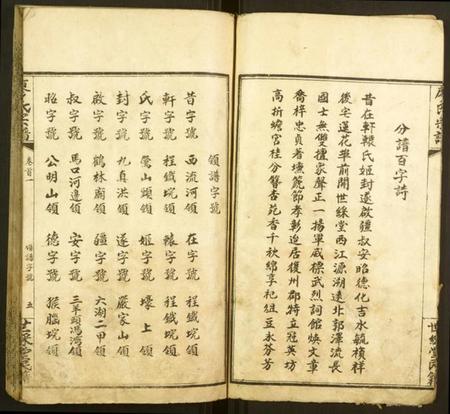 分譜百字詩
昔在軒轅氏姬封遂啟疆叔安昭德化吉水毓禎祥
後宅蓮花華前開世綵堂西江源湖遠北郭澤流長
國士無雙擅家聲正一揚軍威標武烈詞館煥文章
喬梓忠貞著壎箎節孝彰迨居復州郡特立冠英坊
高折蟾宮桂分簪杏苑香千秋綿享祀俎豆永芬芳
世綵堂
領譜字號
昔字號 西流河領 在字號 程鐵塆領
軒字號 程鐵塆領 轅字號 程鐵塆領
氏字號 鶯山頭領 姬字號 壕上領
封字號 九真洪領 遂字號 嚴家山領
啟字號 鶴林廟領 疆字號 六湖二甲領
叔字號 馬口河邊領 安字號 三羊頭馮湾領
昭字號 公明山領 德字號 猴腦塆領
氏宗譜
卷首一
領譜字號
五
世綵堂